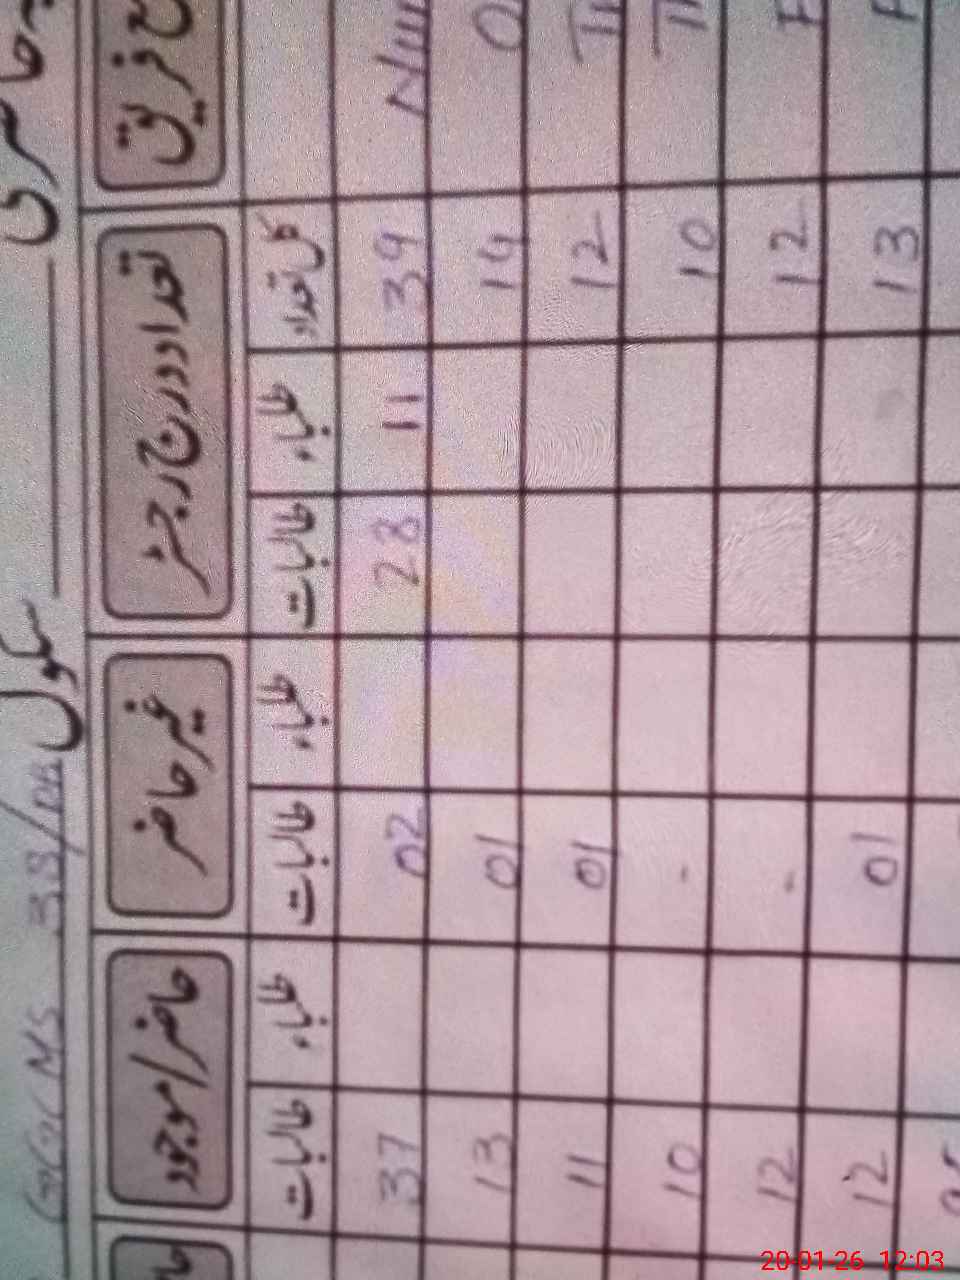 سکول 38/DB
تعداد درج رجسٹر غیر حاضر حاضر/موجود
کل تعداد طلباء طالبات طلباء طالبات طلباء طالبات
39 11 28 02 37
14 01 13
12 01 11
10 - 10
12 - 12
13 01 12
20-01-26 12:03